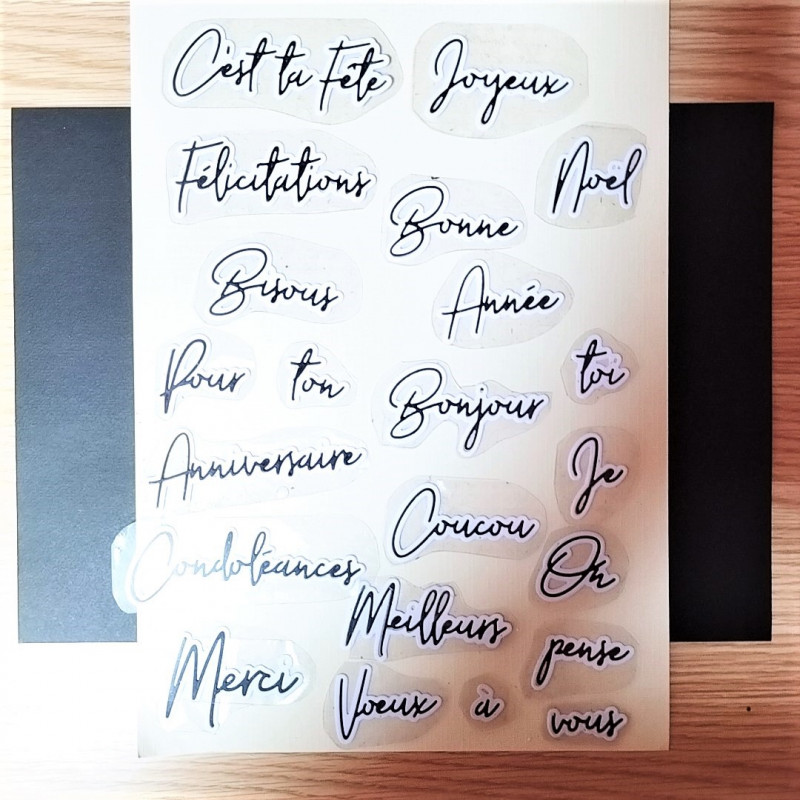 C'est ta Fête
Joyeux
Félicitations
Noël
Bonne
Bisous
Année
Pour
ton
toi
Bonjour
Anniversaire
Je
Coucou
Condoléances
On
Meilleurs
pense
Merci
Voeux
à
vous